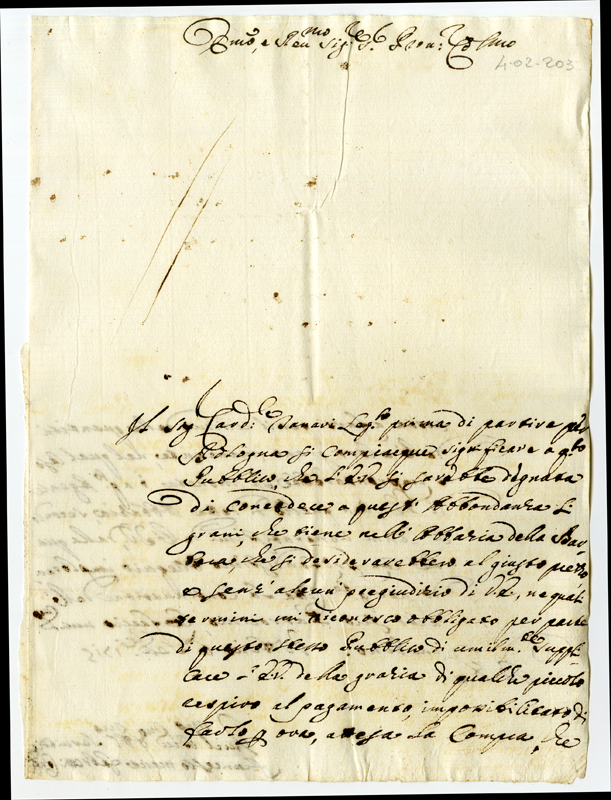 Emo, e Rmo Sigre Pron. Colmo
4-02-203
Il Sigr Cardle Tanari Legto prima di partire per
Bologna si compiacque significare a qto
Pubblico, che l'EV. si sarebbe degnata
di concedere a questa Abbondanza li
grani, che tiene nell'Abbazia della
che si desiderarebbero al giusto prezzo
e senz'alcun pregiudizio di VE, ne quali
termini mi riconosco obbligato per parte
di questo stesso Pubblico di umilmte Suppli
care l'EV. della grazia di qualche piccolo
respiro al pagamento, impossibilitato di
farlo p ora, attesa la Compra, che